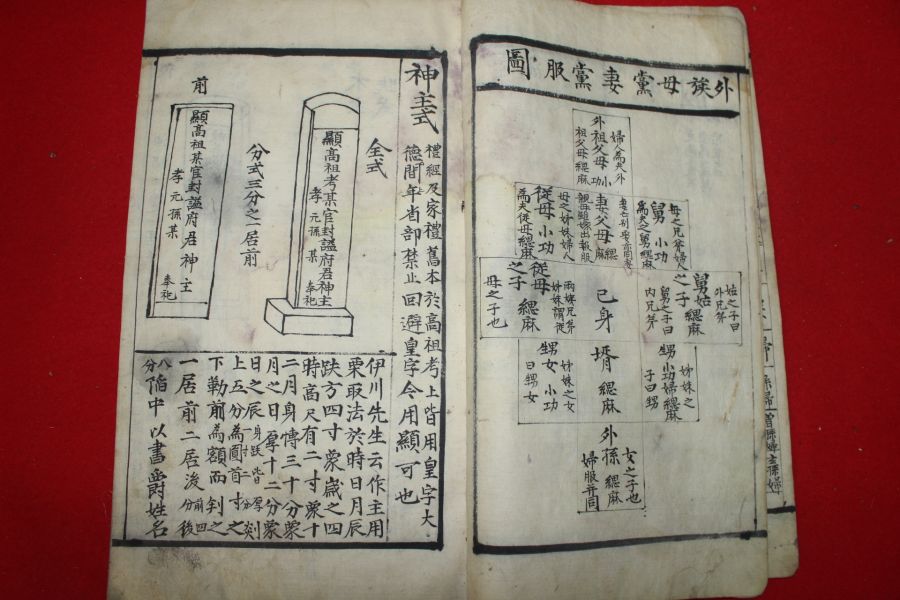 外族母黨妻黨服圖
婦人為夫外
祖父母緦麻
外祖父母小功
母之兄弟婦人
為夫之舅緦麻
舅小功
妻父母緦麻
母之姊妹婦人
為夫從母緦麻
從母小功
姑之子曰
外兄弟
舅之子曰
內兄弟
舅姑之子緦麻
己身
從母之子緦麻
兩姨兄弟
姊妹謂從
母之子也
姊妹之
子曰甥
甥小功婦緦麻
壻緦麻
姊妹之女
曰甥女
甥女小功
女之子也
婦服并同
外孫緦麻
神主式
禮經及家禮舊本於高祖考上皆用皇字大
德間年省部禁止回避皇字今用顯可也
全式
顯高祖考某官封謚府君神主
孝元孫某
奉祀
分式三分之一居前
前
顯高祖某官封謚府君神主
孝元孫某
奉祀
伊川先生云作主用
栗取法於時日月辰
趺方四寸象歲之四
時高尺有二寸象十
二月身博三十分象
月之日厚十二分象
日之辰身趺皆厚一寸二分剡
上五分為圓首寸之
下勒前為額而判之
一居前二居後前四分後八分
陷中以書爵姓名